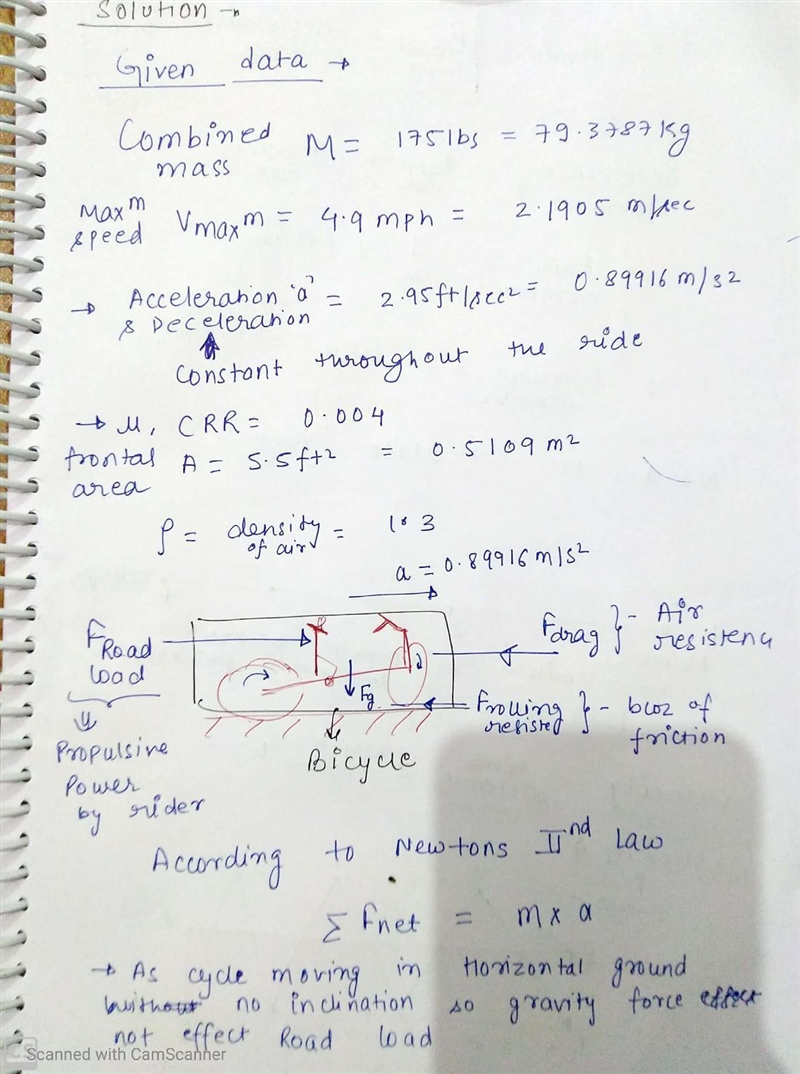 Solution →
Given data →
Combined mass M = 175 lbs = 79.3787 kg
Maxm speed Vmaxm = 4.9 mph = 2.1905 m/sec
→ Acceleration 'a' & Deceleration = 2.95 ft/sec² = 0.89916 m/s2
Constant throughout the ride
→ μ, CRR = 0.004
frontal area A = 5.5 ft2 = 0.5109 m2
ρ = density of air = 1.3
a = 0.89916 m/s2
FRoad load
Fdrag } - Air resistenc
Fg
Frolling resisted } - bcoz of friction
Propulsive Power by rider
Bicycle
According to Newtons IInd law
Σ Fnet = m x a
→ As cycle moving in Horizontal ground
no inclination so gravity force effect
not effect Road load
Scanned with CamScanner